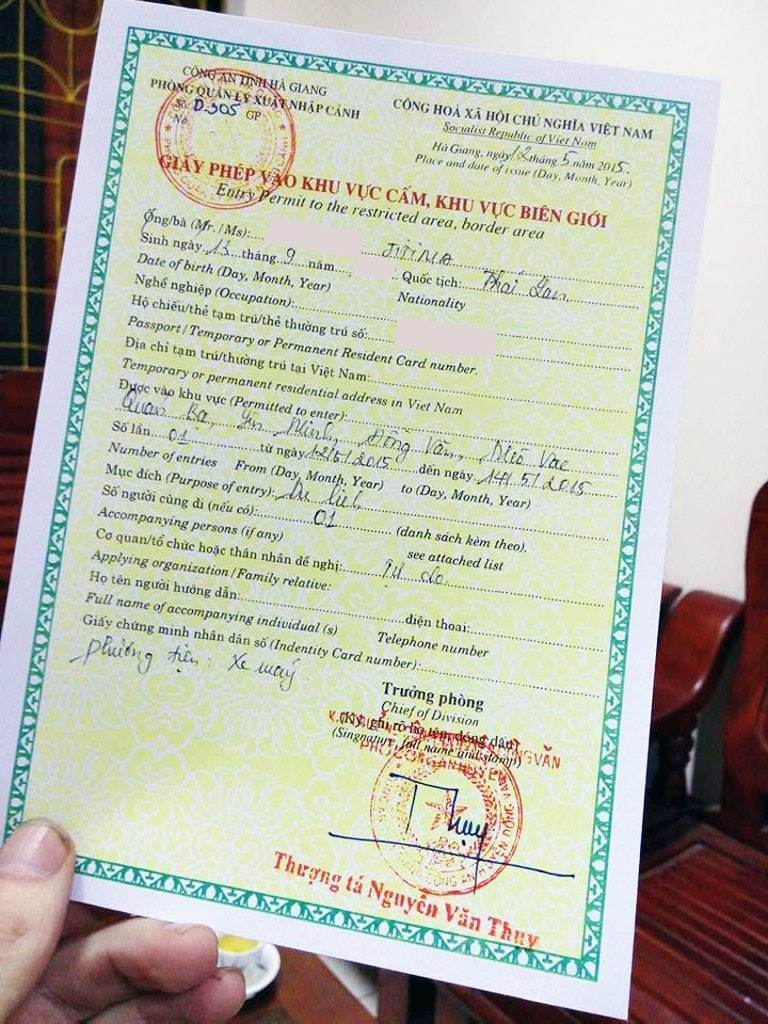 CÔNG AN TỈNH HÀ GIANG
PHÒNG QUẢN LÝ XUẤT NHẬP CẢNH
Số: D.305 GP
No.
CỘNG HOÀ XÃ HỘI CHỦ NGHĨA VIỆT NAM
Socialist Republic of Viet Nam
Hà Giang, ngày 12 tháng 5 năm 2015.
Place and date of issue (Day, Month, Year)
GIẤY PHÉP VÀO KHU VỰC CẤM, KHU VỰC BIÊN GIỚI
Entry Permit to the restricted area, border area
Ông/bà (Mr. / Ms):
Sinh ngày 13 tháng 9 năm
Quốc tịch: Thái Lan
Date of birth (Day, Month, Year)
Nationality
Nghề nghiệp (Occupation):
Hộ chiếu/thẻ tạm trú/thẻ thường trú số:
Passport / Temporary or Permanent Resident Card number.
Địa chỉ tạm trú/thường trú tại Việt Nam:
Temporary or permanent residential address in Viet Nam
Được vào khu vực (Permitted to enter):
Quản Bạ, Yên Minh, Đồng Văn, Mèo Vạc
Số lần 01 từ ngày 12/5/2015 đến ngày 14/5/2015
Number of entries From (Day, Month, Year) to (Day, Month, Year)
Mục đích (Purpose of entry): Du lịch
Số người cùng đi (nếu có): 01 (danh sách kèm theo).
Accompanying persons (if any) see attached list
Cơ quan/tổ chức hoặc thân nhân đề nghị: Tự do
Applying organization / Family relative:
Họ tên người hướng dẫn: điện thoại:
Full name of accompanying individual (s) Telephone number
Giấy chứng minh nhân dân số (Indentity Card number):
Phương tiện: Xe máy
Trưởng phòng
Chief of Division
(Ký, ghi rõ họ tên, đóng dấu)
(Singnature, full name and stamp)
Thụy
Thượng tá Nguyễn Văn Thụy